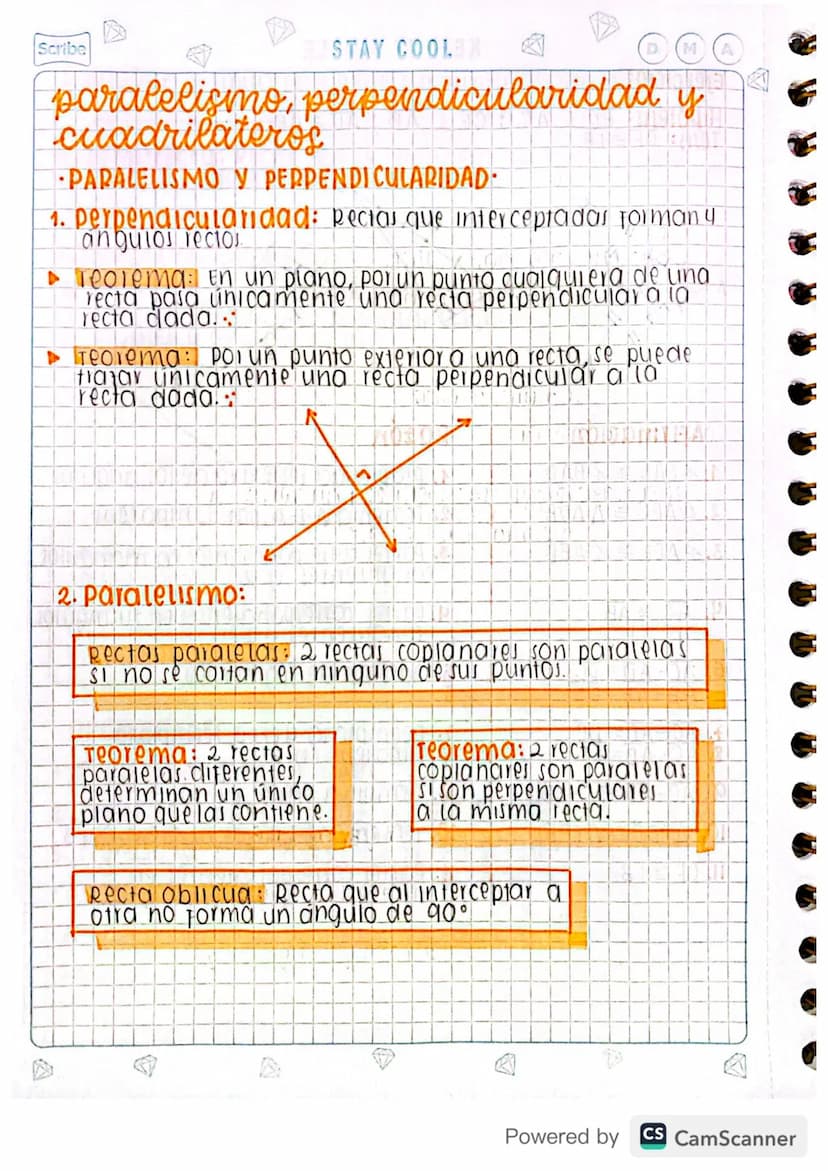 Scribe
STAY COOL
D M A
paralelismo, perpendicularidad y
cuadriláteros
·PARALELISMO Y PERPENDICULARIDAD·
1. Perpendicularidad: Rectas que interceptadas forman 4
ángulos rectos
Teorema: En un plano, por un punto cualquiera de una
recta pasa únicamente una recta perpendicular a la
recta dada.
Teorema: Por un punto exterior a una recta, se puede
trazar únicamente una recta perpendicular a la
recta dada.
2. Paralelismo:
Rectas paralelas: 2 rectas coplanares son paralelas
si no se cortan en ninguno de sus puntos.
Teorema: 2 rectas
paralelas diferentes,
determinan un único
plano que las contiene.
Teorema: 2 rectas
coplanares son paralelas
si son perpendiculares
a la misma recta.
Recta oblicua: Recta que al interceptar a
otra no forma un ángulo de 90°
Powered by CS CamScanner